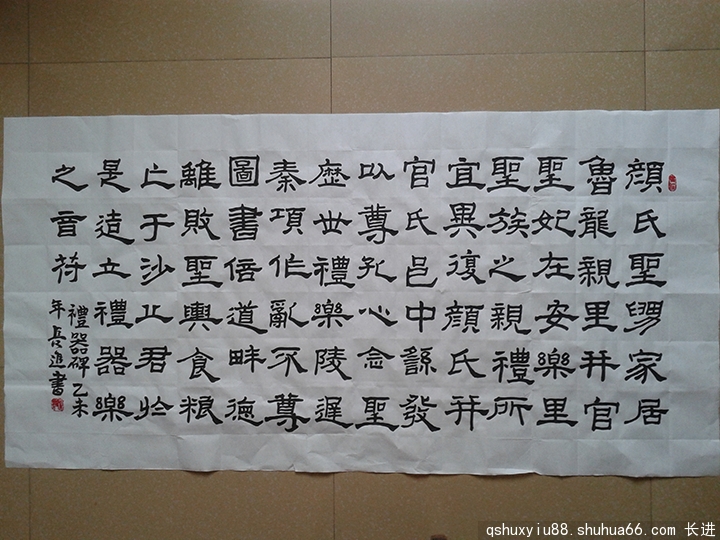 顏氏聖舅家居
魯龍親里并官
聖妃在安樂里
聖族之親禮所
宜異復顏氏并
官氏邑中繇發
以尊孔心念聖
歷世禮樂陵遲
秦項作亂不尊
圖書倍道畔德
離敗聖輿食粮
亡于沙丘君於
是造立禮器樂
之音苻
禮器碑乙未
年長進書
qshuxyiu88.shuhua66.com 长进